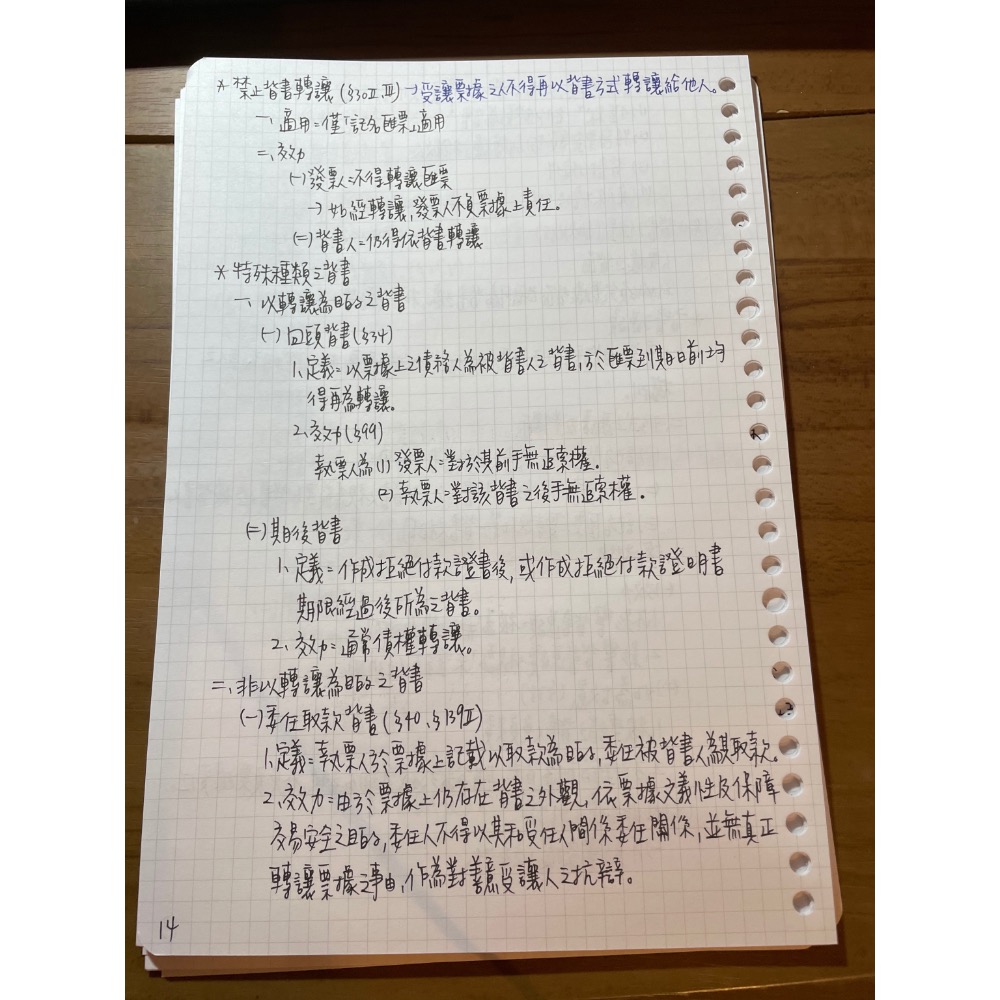 * 禁止背書轉讓(§30Ⅱ、Ⅲ)→受讓票據之人不得再以背書方式轉讓給他人。
一、適用=僅「記名匯票」適用
二、效力
(一)發票人=不得轉讓匯票
→如經轉讓,發票人不負票據上責任。
(二)背書人=仍得依背書轉讓
* 特殊種類之背書
一、以轉讓為目的之背書
(一)回頭背書(§34)
1、定義=以票據上之債務人為被背書人之背書,於匯票到期日前均
得再為轉讓。
2、效力(§99)
執票人為(1)發票人=對於其前手無追索權。
(2)執票人=對該背書之後手無追索權。
(二)期後背書
1、定義=作成拒絕付款證書後,或作成拒絕付款證明書
期限經過後所為之背書。
2、效力=通常債權轉讓。
二、非以轉讓為目的之背書
(一)委任取款背書(§40、§139Ⅱ)
1、定義=執票人於票據上記載以取款為目的,委任被背書人為其取款。
2、效力=由於票據上仍存在背書之外觀,依票據文義性及保障
交易安全之目的,委任人不得以其和受任人間係委任關係,並無真正
轉讓票據之事由,作為對善意受讓人之抗辯。
14